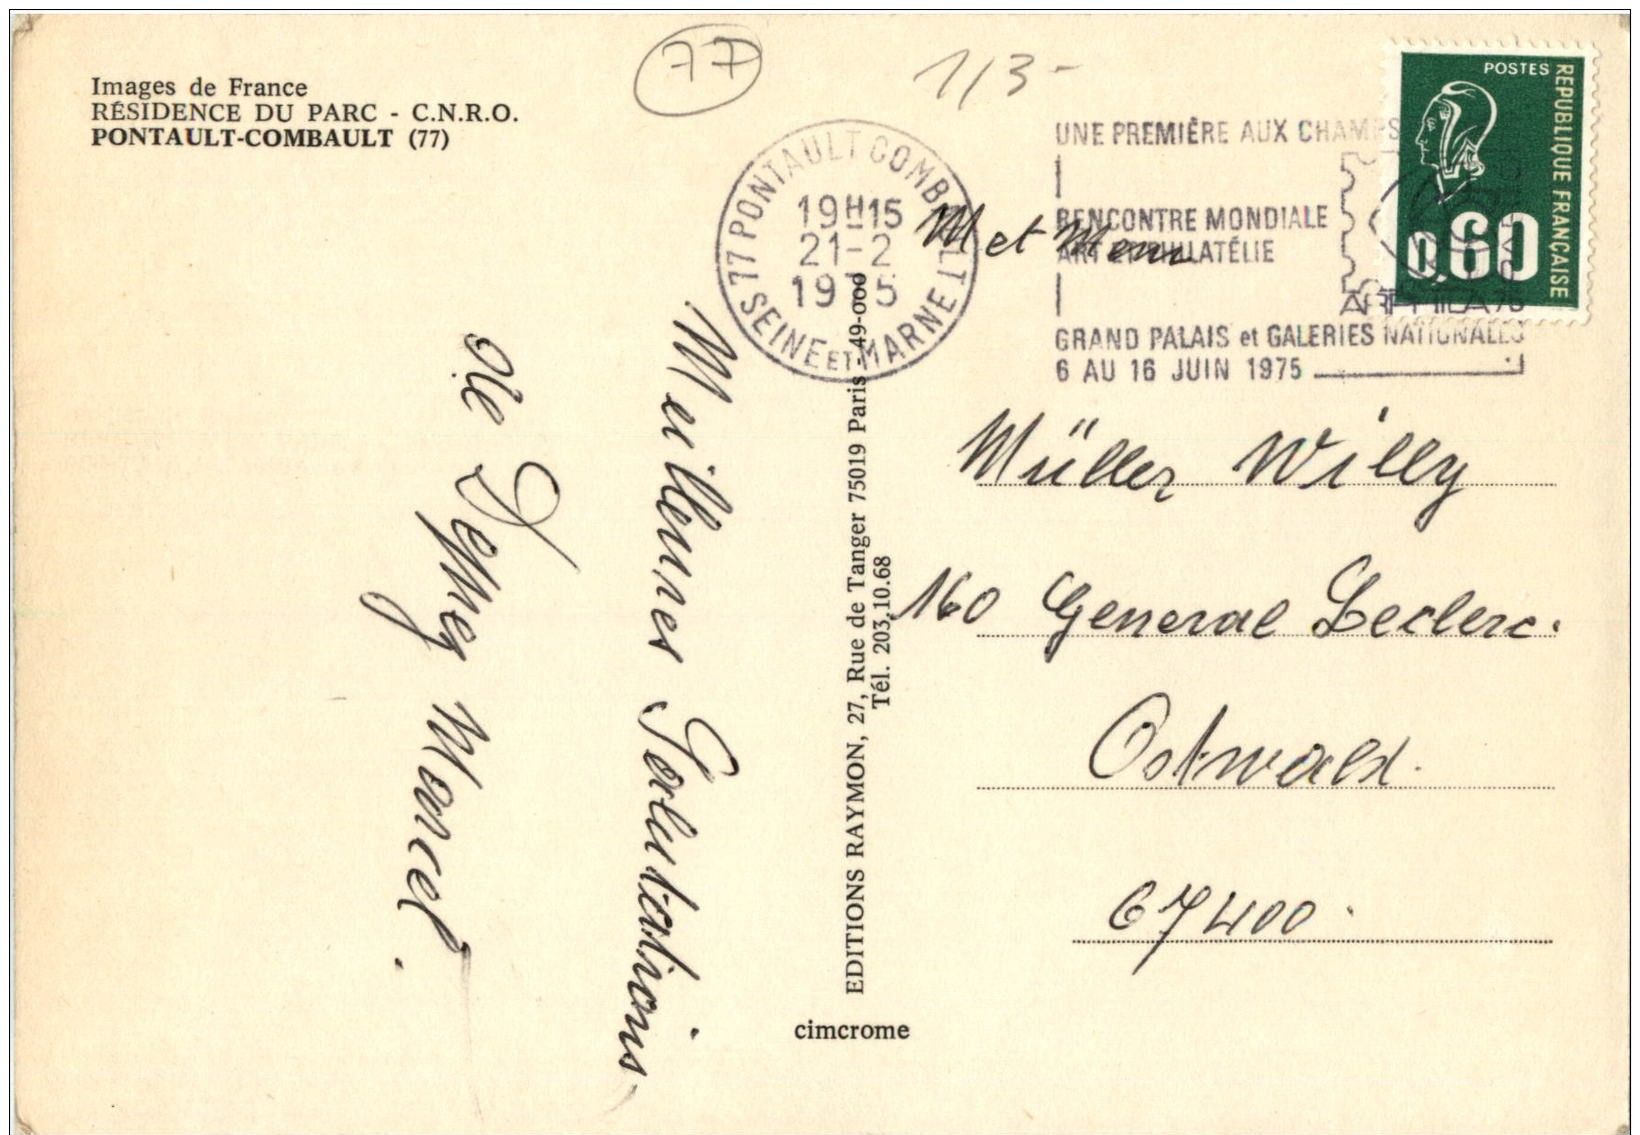 Images de France
RÉSIDENCE DU PARC - C.N.R.O.
PONTAULT-COMBAULT (77)
77
1/3-
77 PONTAULT COMBAULT
19H15
21-2
1975
SEINE ET MARNE
UNE PREMIÈRE AUX CHAMPS
RENCONTRE MONDIALE
ART ET PHILATÉLIE
ARPHILA 75
GRAND PALAIS et GALERIES NATIONALES
6 AU 16 JUIN 1975
POSTES
REPUBLIQUE FRANÇAISE
0,60
M et Mem
Müller Willy
160 General Leclerc.
Ostwald.
67400.
Meillenres Salutations
de Marcel.
EDITIONS RAYMON, 27, Rue de Tanger 75019 Paris - 49-000
Tél. 203.10.68
cimcrome